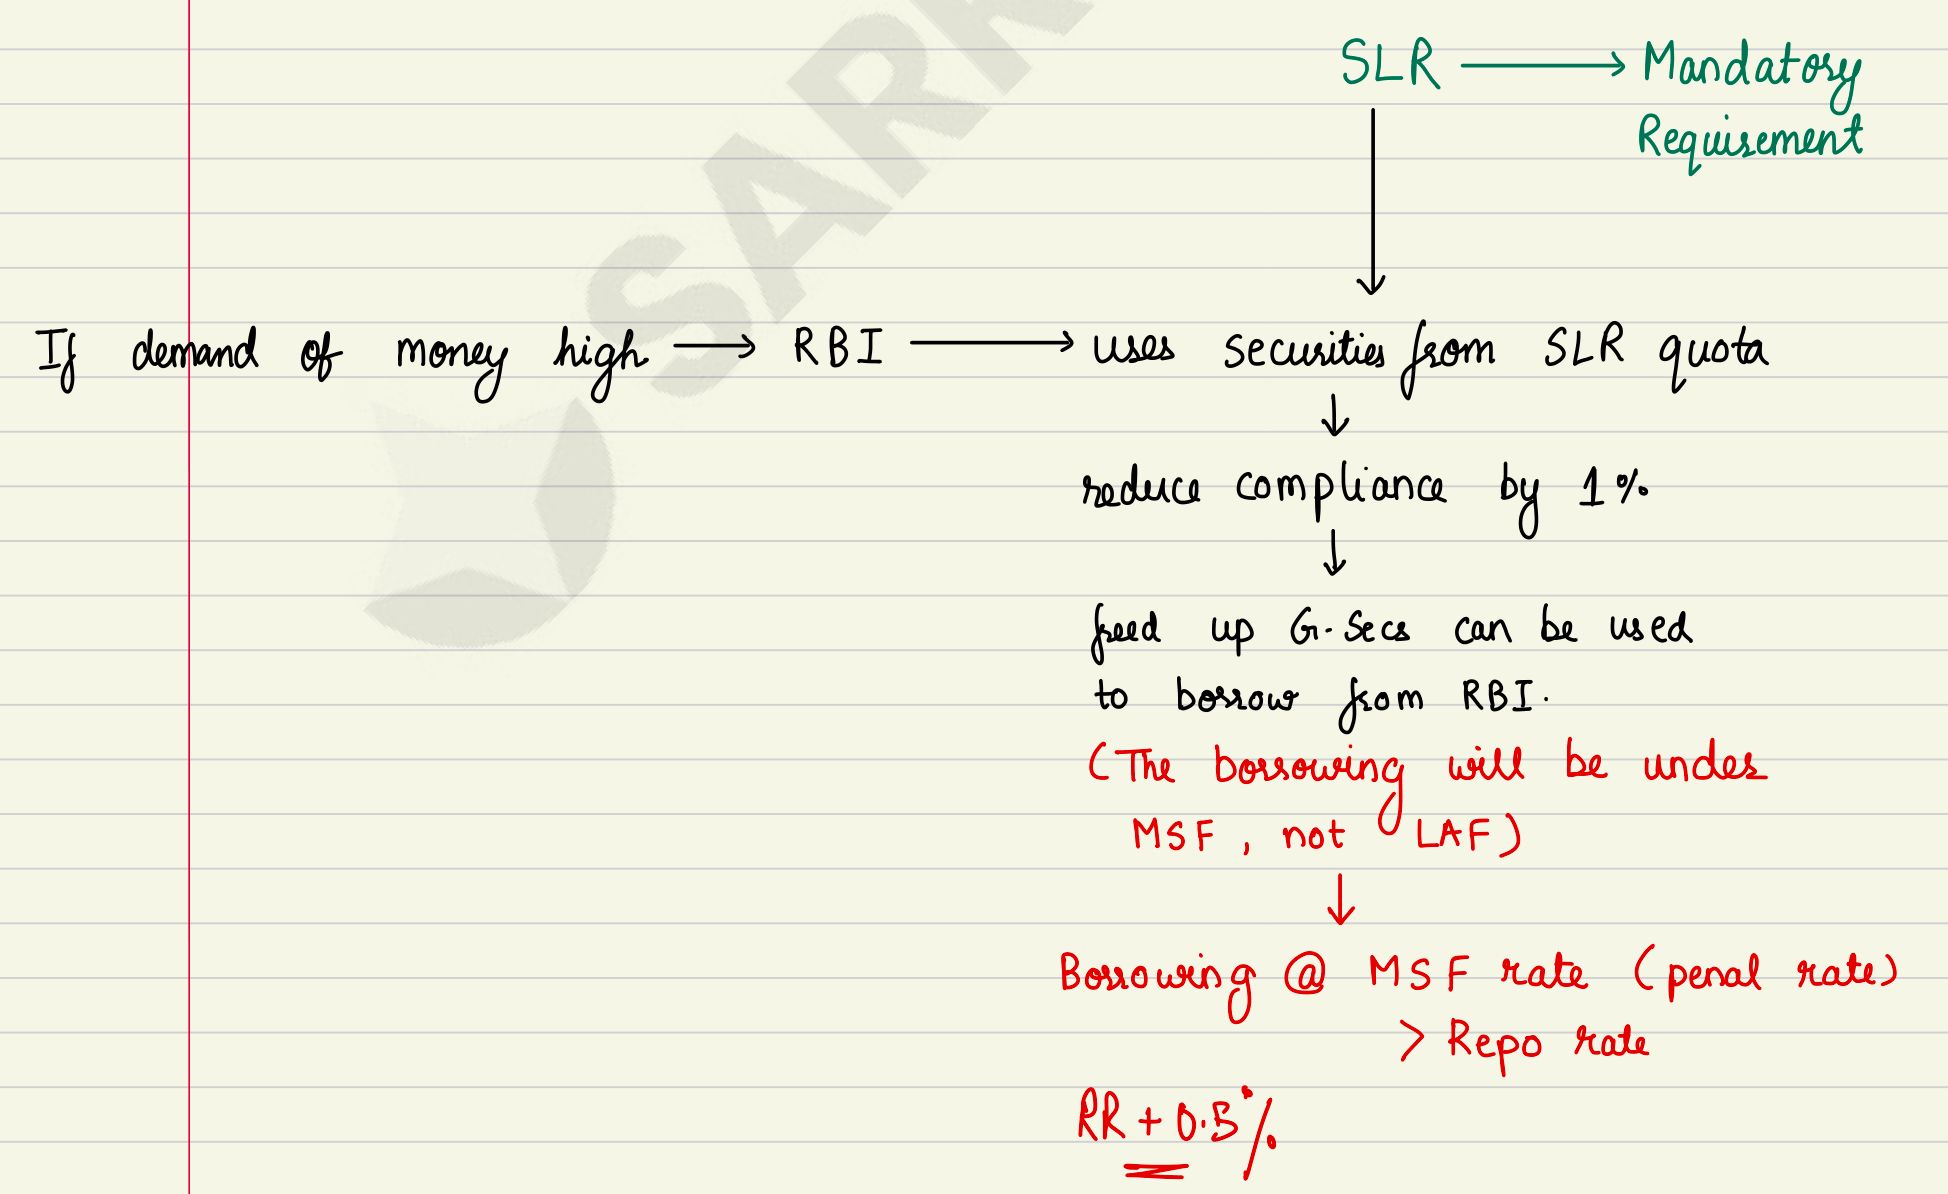 SLR → Mandatory
Requirement
If demand of money high → RBI → uses securities from SLR quota
↓
reduce compliance by 1%
↓
freed up G-Secs can be used
to borrow from RBI.
(The borrowing will be under
MSF, not LAF)
↓
Borrowing @ MSF rate (penal rate)
> Repo rate
RR + 0.5%
SAR